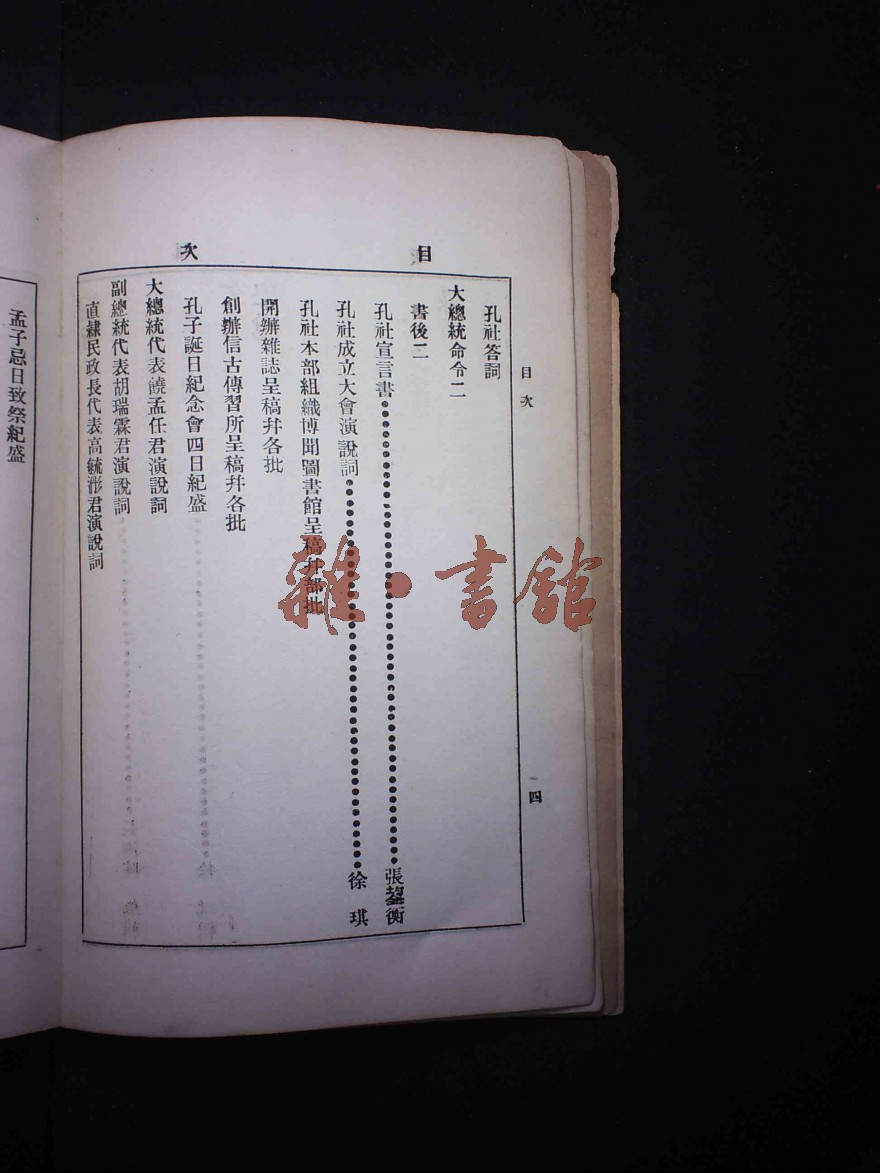 目次
目次
四
孔社答詞
大總統命令二
書後二
孔社宣言書 張鋆衡
孔社成立大會演說詞 徐琪
孔社本部組織博聞圖書館呈稿幷部批
開辦雜誌呈稿幷各批
創辦信古傳習所呈稿幷各批
孔子誕日紀念會四日紀盛
大總統代表饒孟任君演說詞
副總統代表胡瑞霖君演說詞
直隸民政長代表高毓浵君演說詞
孟子忌日致祭紀盛
雜·書館